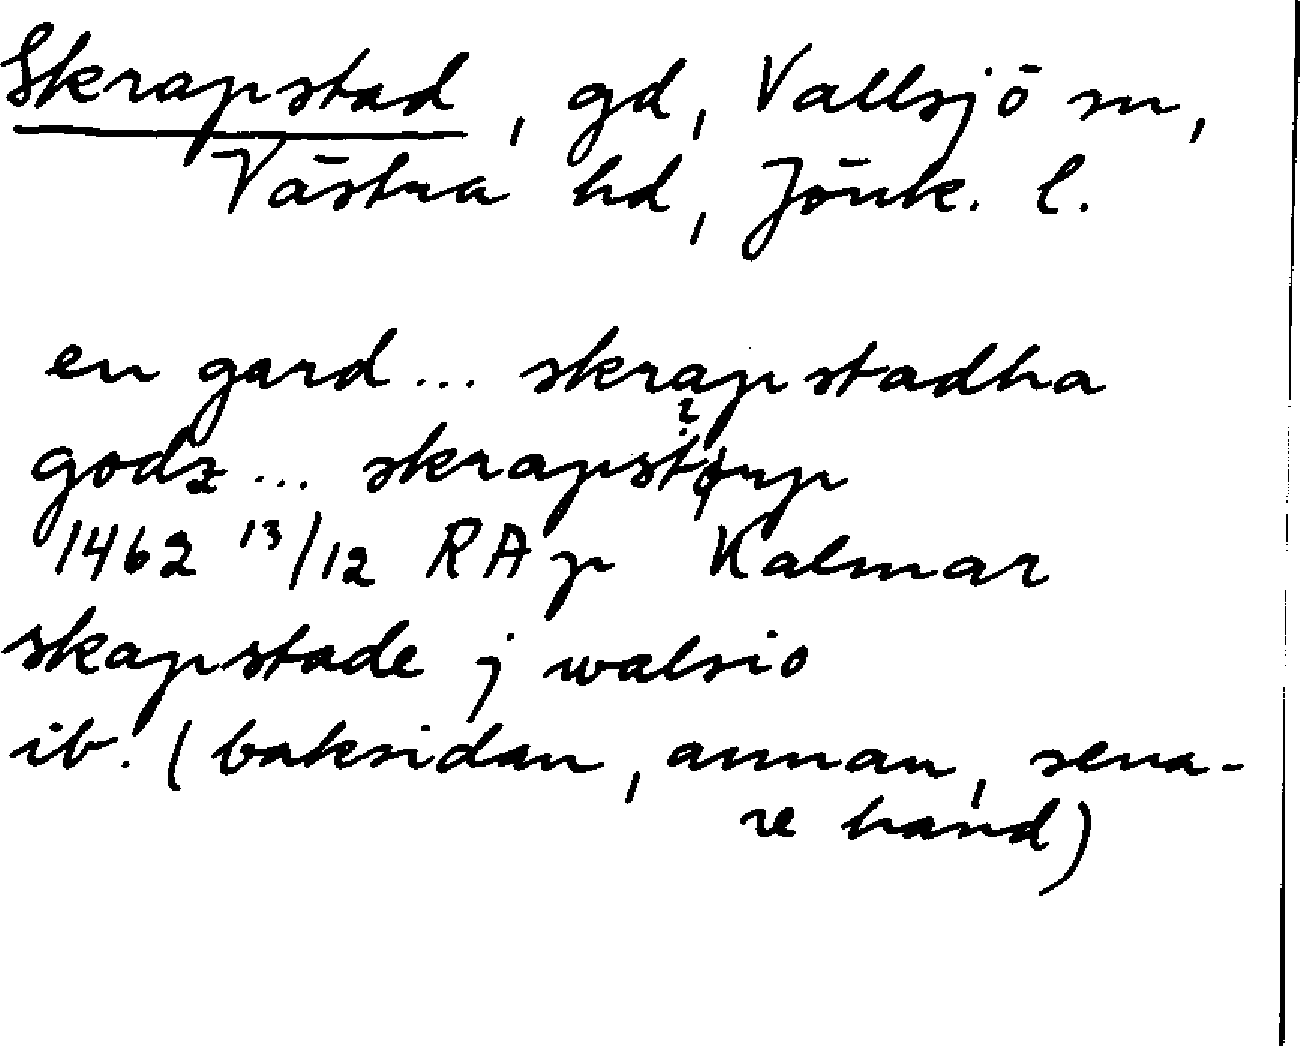 Skrapstad, gd, Vallsjö sn,
Västra hd, Jönk. l.
en gard... skrapstadha
godz... skrapstørp
1462 13/12 RAp Kalmar
skapstade j walsio
ib. (baksidan, annan, sena-
re hand)